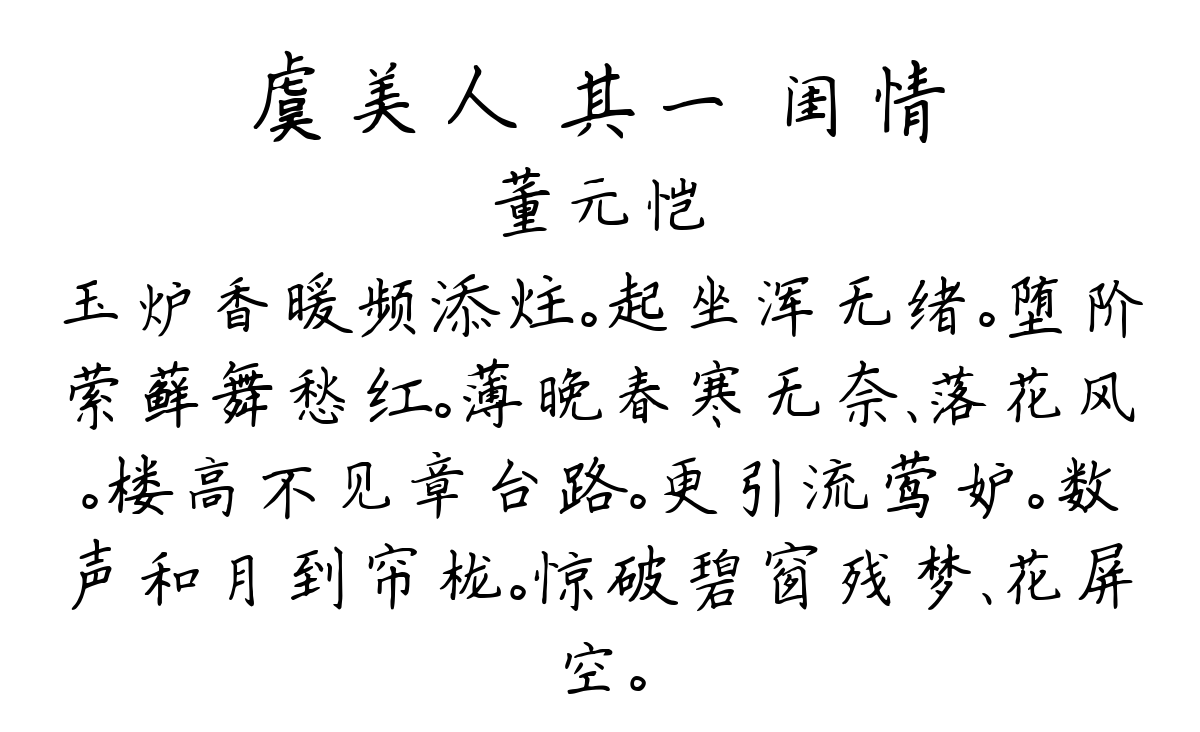 虞美人 其一 闺情
董元恺
玉炉香暖频添炷。起坐浑无绪。堕阶
萦藓舞愁红。薄晚春寒无奈、落花风
。楼高不见章台路。更引流莺妒。数
声和月到帘栊。惊破碧窗残梦、花屏
空。